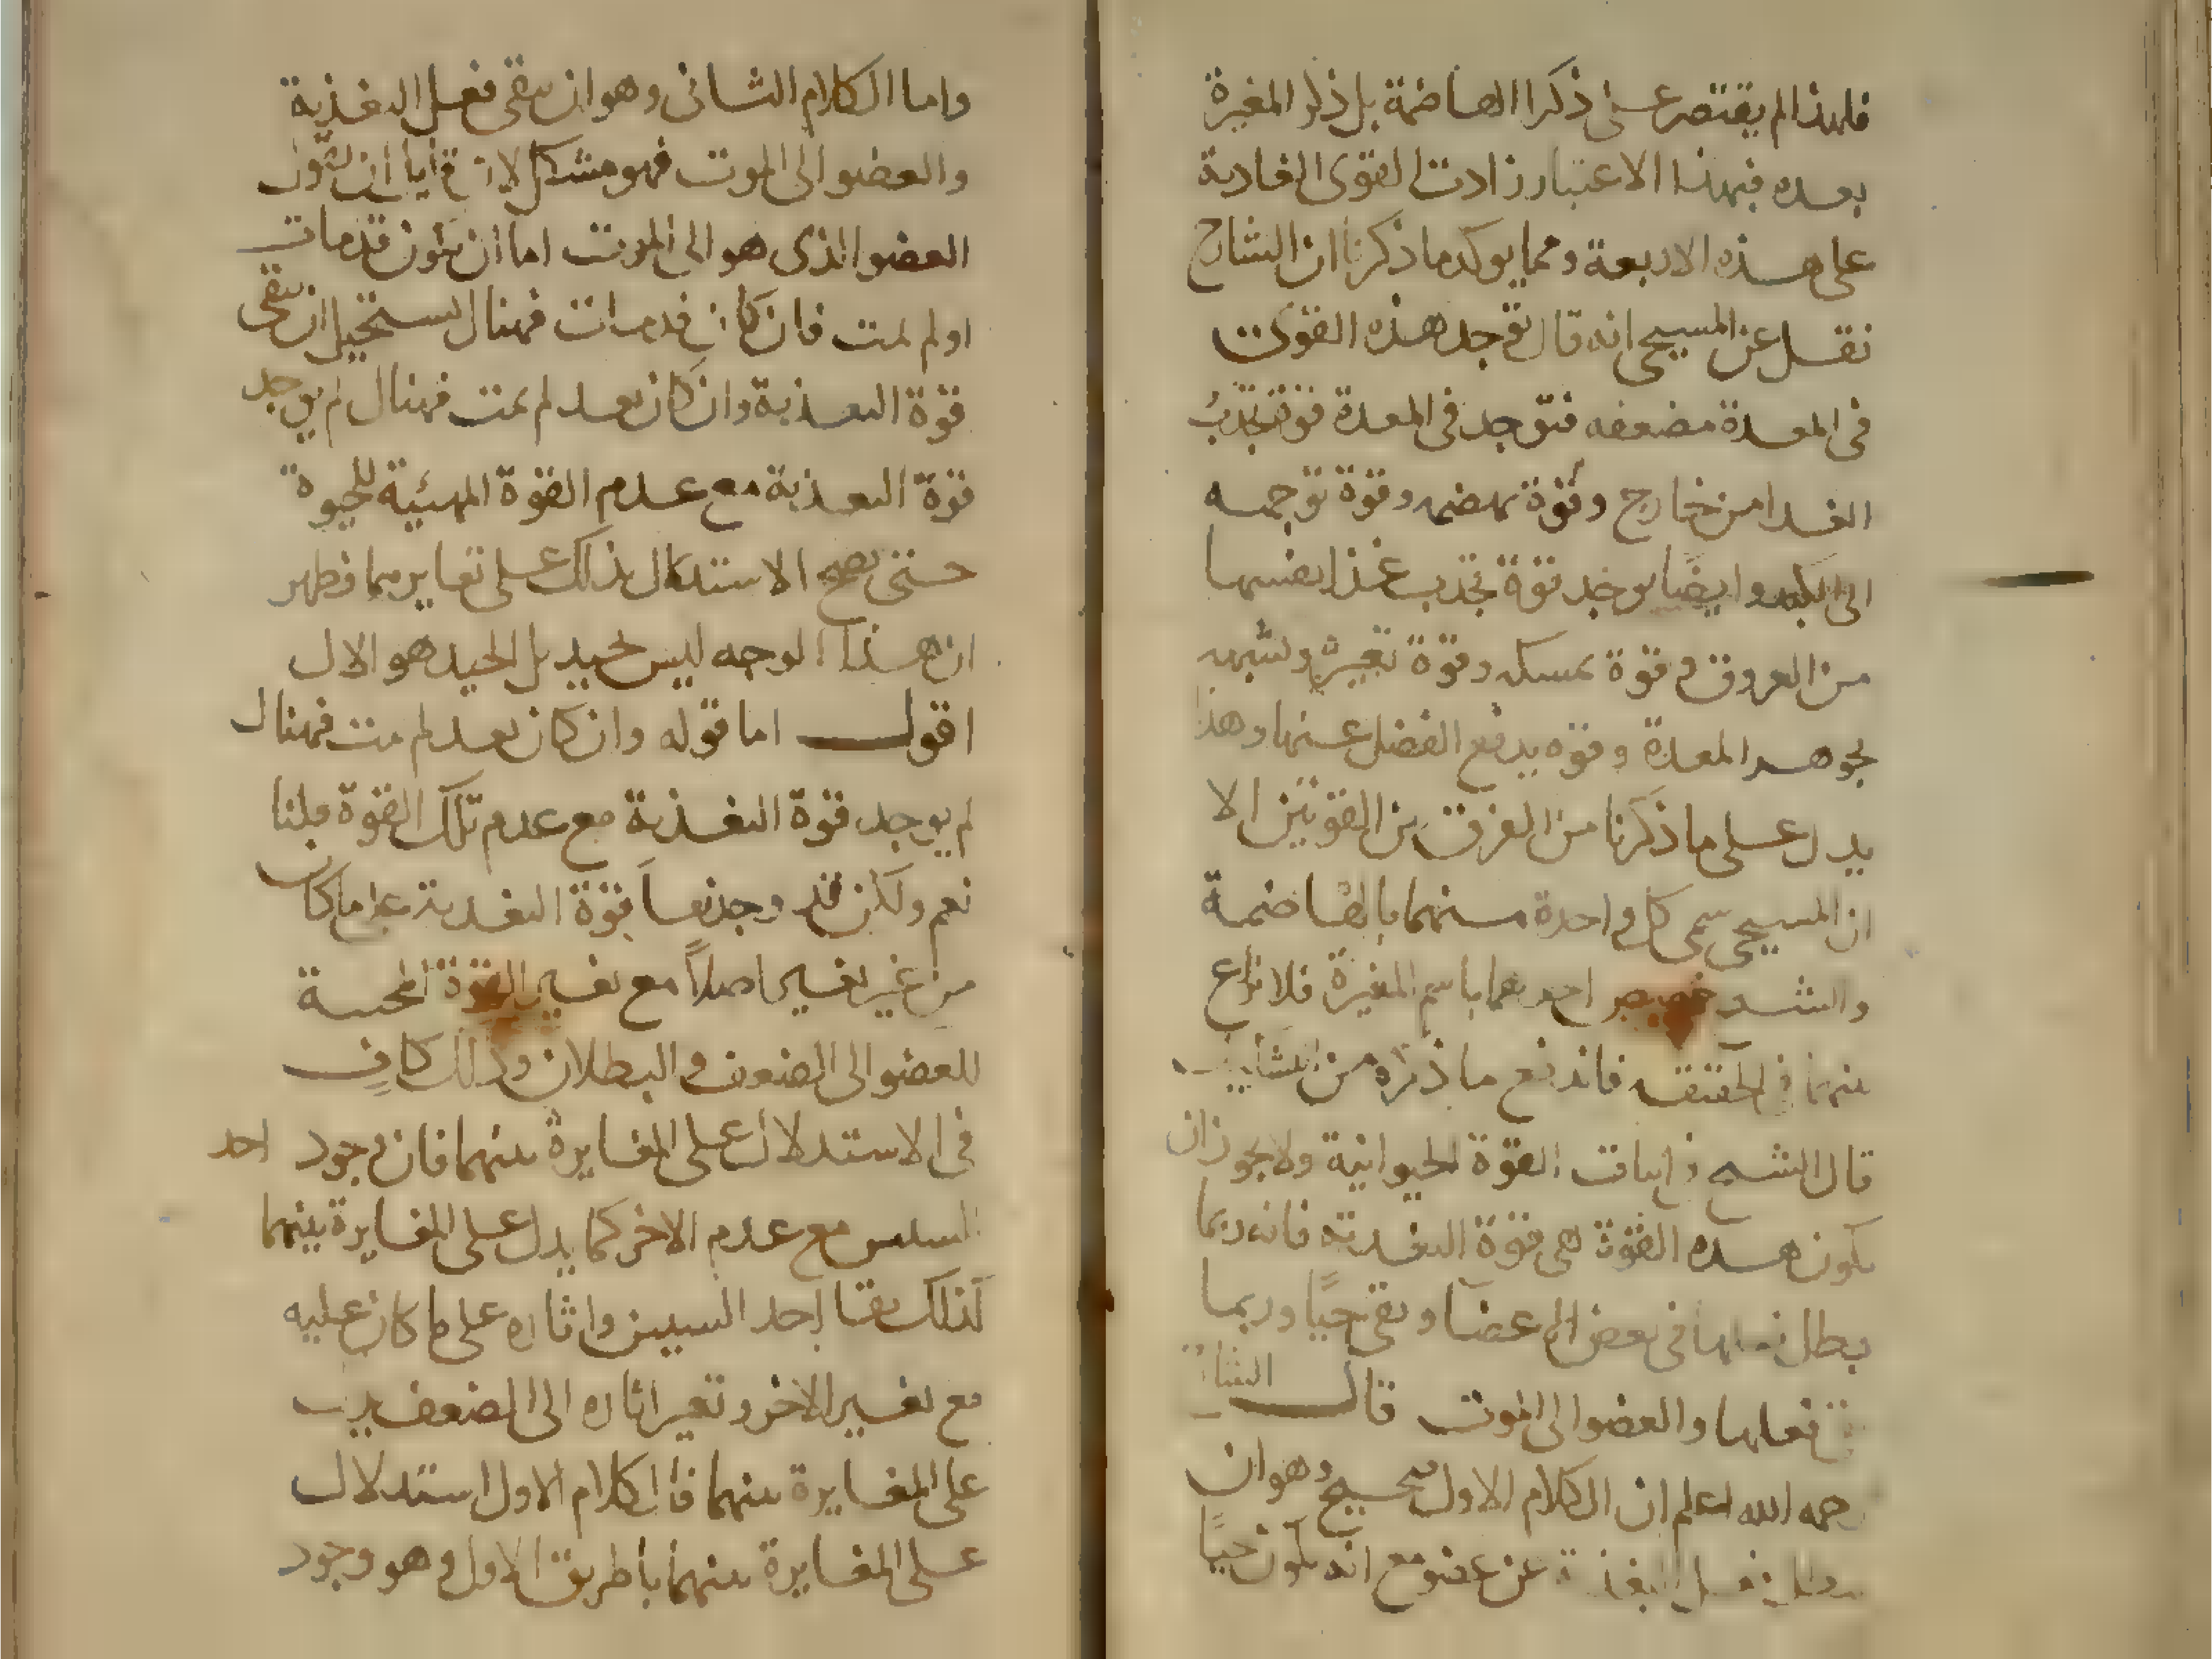 فلهذا لم يقتصر على ذكر الهاضمة بل ذكر المغيرة
بعده فبهذا الاعتبار زادت القوى الغادية
على هذه الاربعة ومما يوكد ما ذكرنا ان الشارح
نقل عن المسيحي انه قال توجد هذه القوى
فى المعدة مضعفه فتوجد فى المعدة قوة تجذب
الغدا من خارج وقوة تهضمه وقوة توجهه
الى الكبد وايضًا يوجد قوة تجذب غذا نفسها
من العروق وقوة تمسكه وقوة تغيره وتشبهه
بجوهر المعدة وقوه يدفع الفضل عنها وهذا
يدل على ما ذكرنا من الفرق بين القوتين الا
ان المسيحي سمى كل واحدة منهما بالهاضمة
والشيخ احدهما باسم المغيرة فلا نزاع
بينهما فى الحقيقة فاندفع ما ذكره من
قال الشيخ فى اثبات القوة الحيوانية ولا يجوز ان
يكون هده القوة هى قوة التغدية فانه ربما
بطل فعلها فى بعض الاعضا وبقى حيًا وربما
بقى فعلها والعضو الى الموت قال الشارح
رحمه الله اعلم ان الكلام الاول صحيح وهو ان
بطل فعل التغذية عن عضو مع انه يكون حيًا
واما الكلام الثانى وهو ان يبقى فعل التغذية
والعضو الى الموت فهو مشكل لان ايا ان نقول
العضو الذى هو الى الموت اما ان يكون قد مات
او لم يمت فان كان قد مات فهناك يستحيل ان يبقى
قوة التغذية وان كان بعد لم يمت فهناك لم يوجد
قوة التغذية مع عدم القوة المهيئة للحيوة
حتى يصح الاستدلال بذلك على تغايرهما فظهر
ان هذا الوجه ليس بجيد بل الجيد هو الاول
اقول اما قوله وان كان بعد لم يمت فهناك
لم يوجد قوة التغذية مع عدم تلك القوة قلنا
نعم ولكن قد وجد بقا قوة التغدية على ما كان
من غير تغيير اصلاً مع تغيير القوة المحيية
للعضو الى الضعف والبطلان وذلك كافٍ
فى الاستدلال على المغايرة بينهما فان وجود احد
الشيئين مع عدم الاخر كما يدل على المغايرة بينهما
كذلك بقا احد الشيئين واثاره على ما كان عليه
مع تغيير الاخر وتغير اثاره الى الضعف يدل
على المغايرة بينهما فالكلام الاول استدلال
على المغايرة بينهما بالطريق الاول وهو وجود